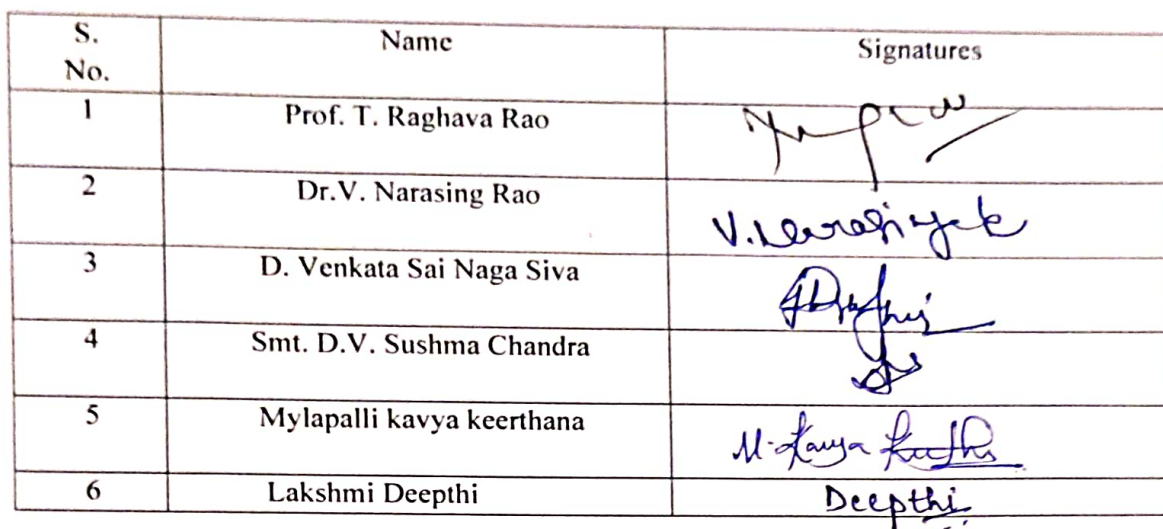 S. No. Name Signatures
1 Prof. T. Raghava Rao
2 Dr.V. Narasing Rao
3 D. Venkata Sai Naga Siva
4 Smt. D.V. Sushma Chandra
5 Mylapalli kavya keerthana M. Kavya
6 Lakshmi Deepthi Deepthi